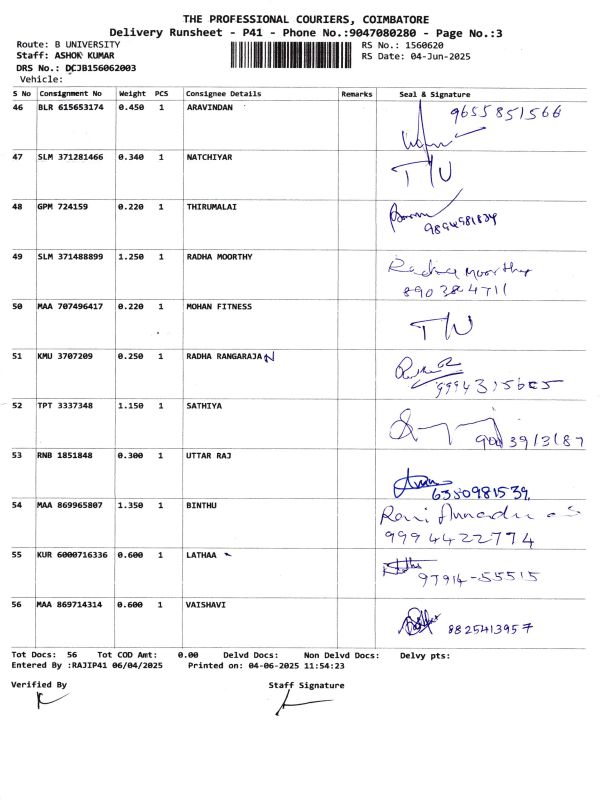 THE PROFESSIONAL COURIERS, COIMBATORE
Delivery Runsheet - P41 - Phone No.:9047080280 - Page No.:3
Route: B UNIVERSITY RS No.: 1560620
Staff: ASHOK KUMAR RS Date: 04-Jun-2025
DRS No.: DCJB156062003
Vehicle:
S No Consignment No Weight PCS Consignee Details Remarks Seal & Signature
46 BLR 615653174 0.450 1 ARAVINDAN 9655851566
47 SLM 371281466 0.340 1 NATCHIYAR T/W
48 GPM 724159 0.220 1 THIRUMALAI
9894981834
49 SLM 371488899 1.250 1 RADHA MOORTHY Radha Moorthy
8903284711
50 MAA 707496417 0.220 1 MOHAN FITNESS T/W
51 KMU 3707209 0.250 1 RADHA RANGARAJAN
52 TPT 3337348 1.150 1 SATHIYA
53 RNB 1851848 0.300 1 UTTAR RAJ
6350981539
54 MAA 869965807 1.350 1 BINTHU
9994422774
55 KUR 6000716336 0.600 1 LATHAA
97914-55515
56 MAA 869714314 0.600 1 VAISHAVI 8825413957
Tot Docs: 56 Tot COD Amt: 0.00 Delvd Docs: Non Delvd Docs: Delvy pts:
Entered By :RAJIP41 06/04/2025 Printed on: 04-06-2025 11:54:23
Verified By Staff Signature